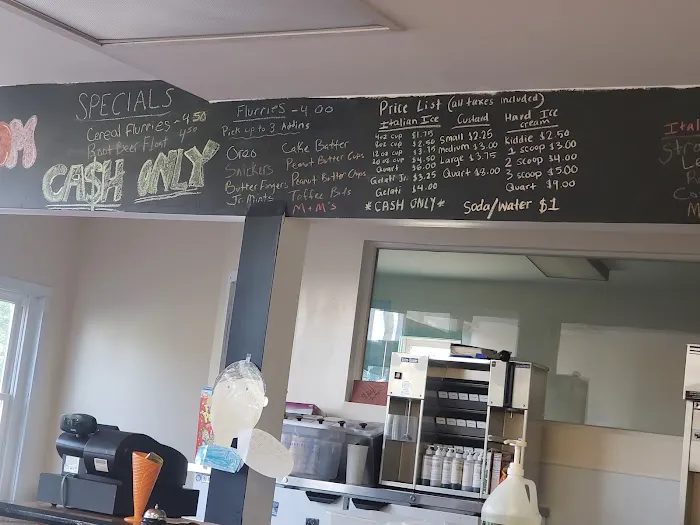 OM
SPECIALS
Cereal Flurries - 4.50
Root Beer Float 4.50
CA$H ONLY
Flurries - 4.00
Pick up to 3 Adding
Oreo
Snickers
Butter Fingers
Jr Mints
Cake Batter
Peanut Butter Cups
Peanut Butter Chips
Toffee Bits
M+M's
Price List (all taxes included)
Italian Ice
4oz cup $1.75
8oz cup $2.50
12oz cup $3.75
20oz cup $4.50
Quart $6.00
Gelati Jr. $3.25
Gelati $4.00
*CASH ONLY*
Custard
Small $2.25
medium $3.00
Large $3.75
Quart $8.00
Hard Ice
cream
kiddie $2.50
1 scoop $3.00
2 scoop $4.00
3 scoop $5.00
Quart $9.00
Soda/Water $1
Ital
Str
L